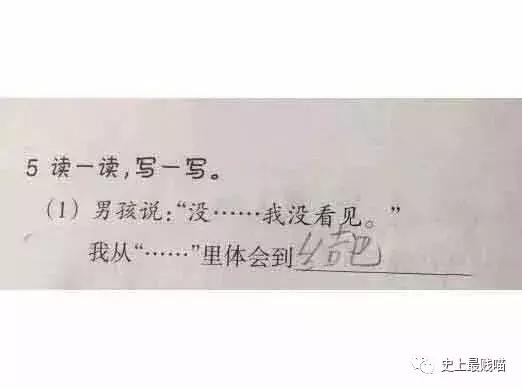 5 读一读,写一写。
(1) 男孩说:“没……我没看见。”
我从“……”里体会到结巴
史上最贱喵